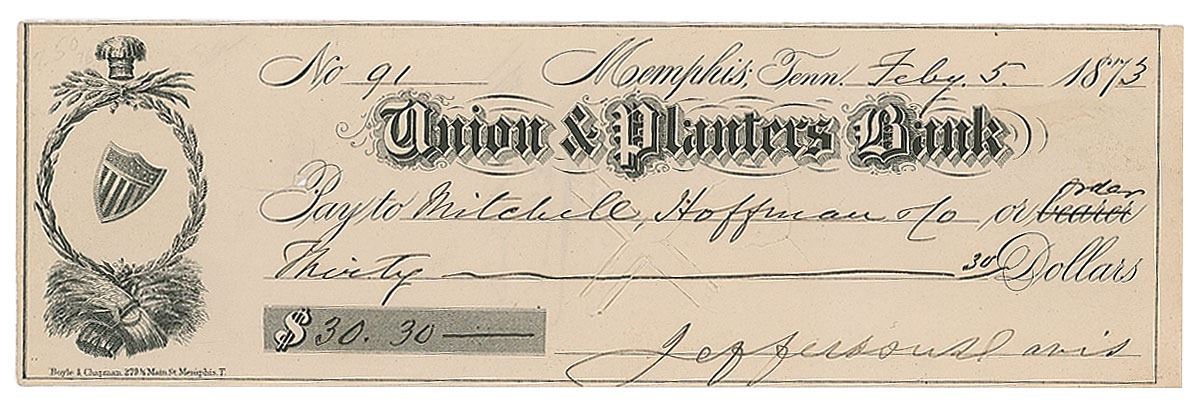 No 91 Memphis, Tenn. Feby. 5 1873
Union & Planters Bank
Pay to Mitchell, Hoffman c/o or bearer order
Thirty 30 Dollars
$ 30.30
Jefferson Davis
Boyle & Chapman. 279½ Main St. Memphis, T.